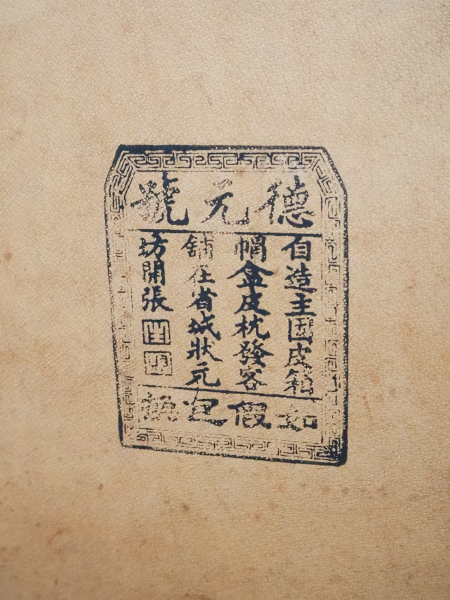 德元號
自造主固皮箱
帽盒皮枕發客
舖在省城狀元
坊開張
如假包換